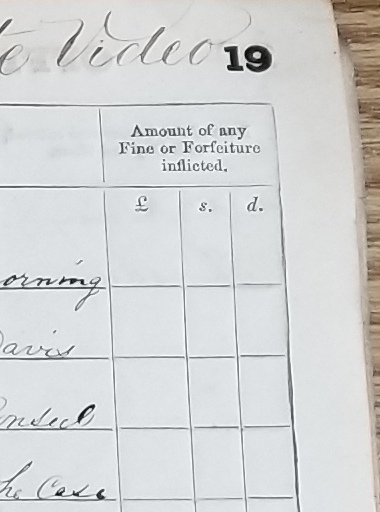 te Video 19
Amount of any
Fine or Forfeiture
inflicted.
£ s. d.
orning
avis
the Case